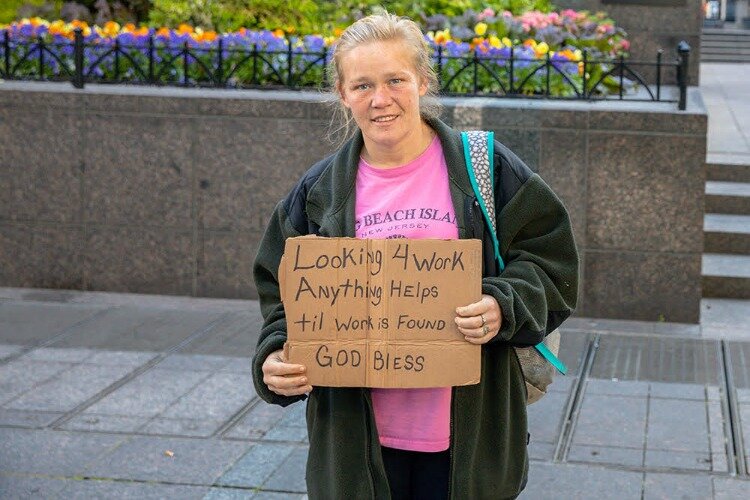 BEACH ISLAND
NEW JERSEY
Looking 4 Work
Anything Helps
til Work is Found
GOD Bless